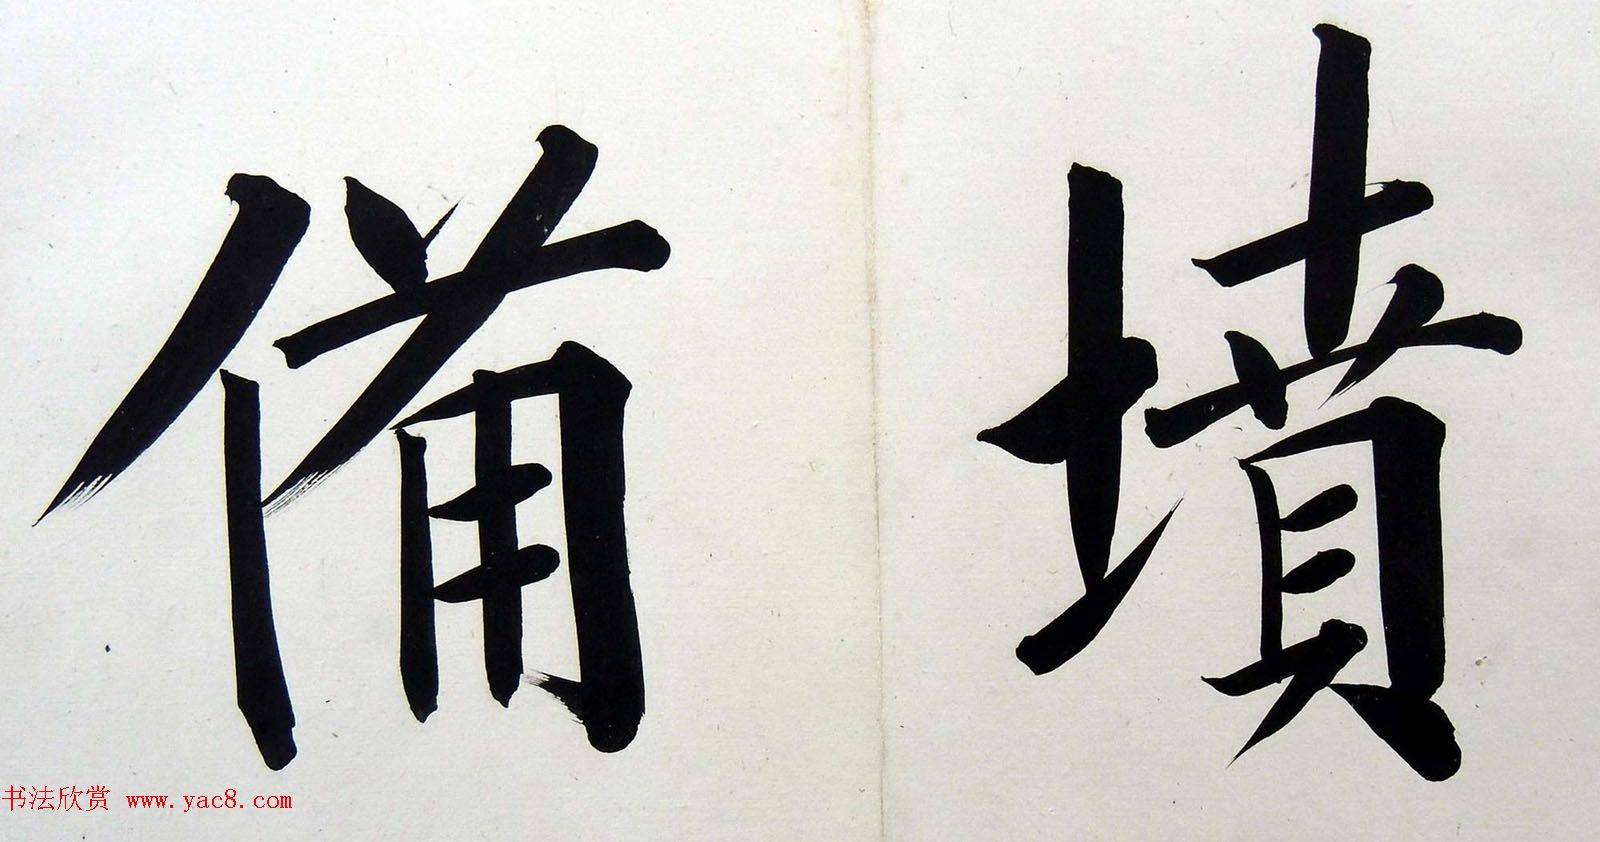 墳備
书法欣赏 www.yac8.com